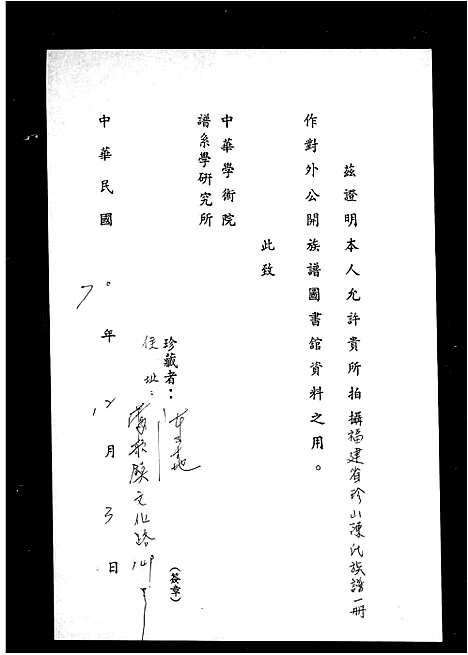 茲證明本人允許貴所拍攝福建省珍山陳氏族譜一册
作對外公開族譜圖書館資料之用。
此致
中華學術院
譜系學研究所
珍藏者：
住址：屏東縣文化路
(簽章)
中華民國70年12月3日